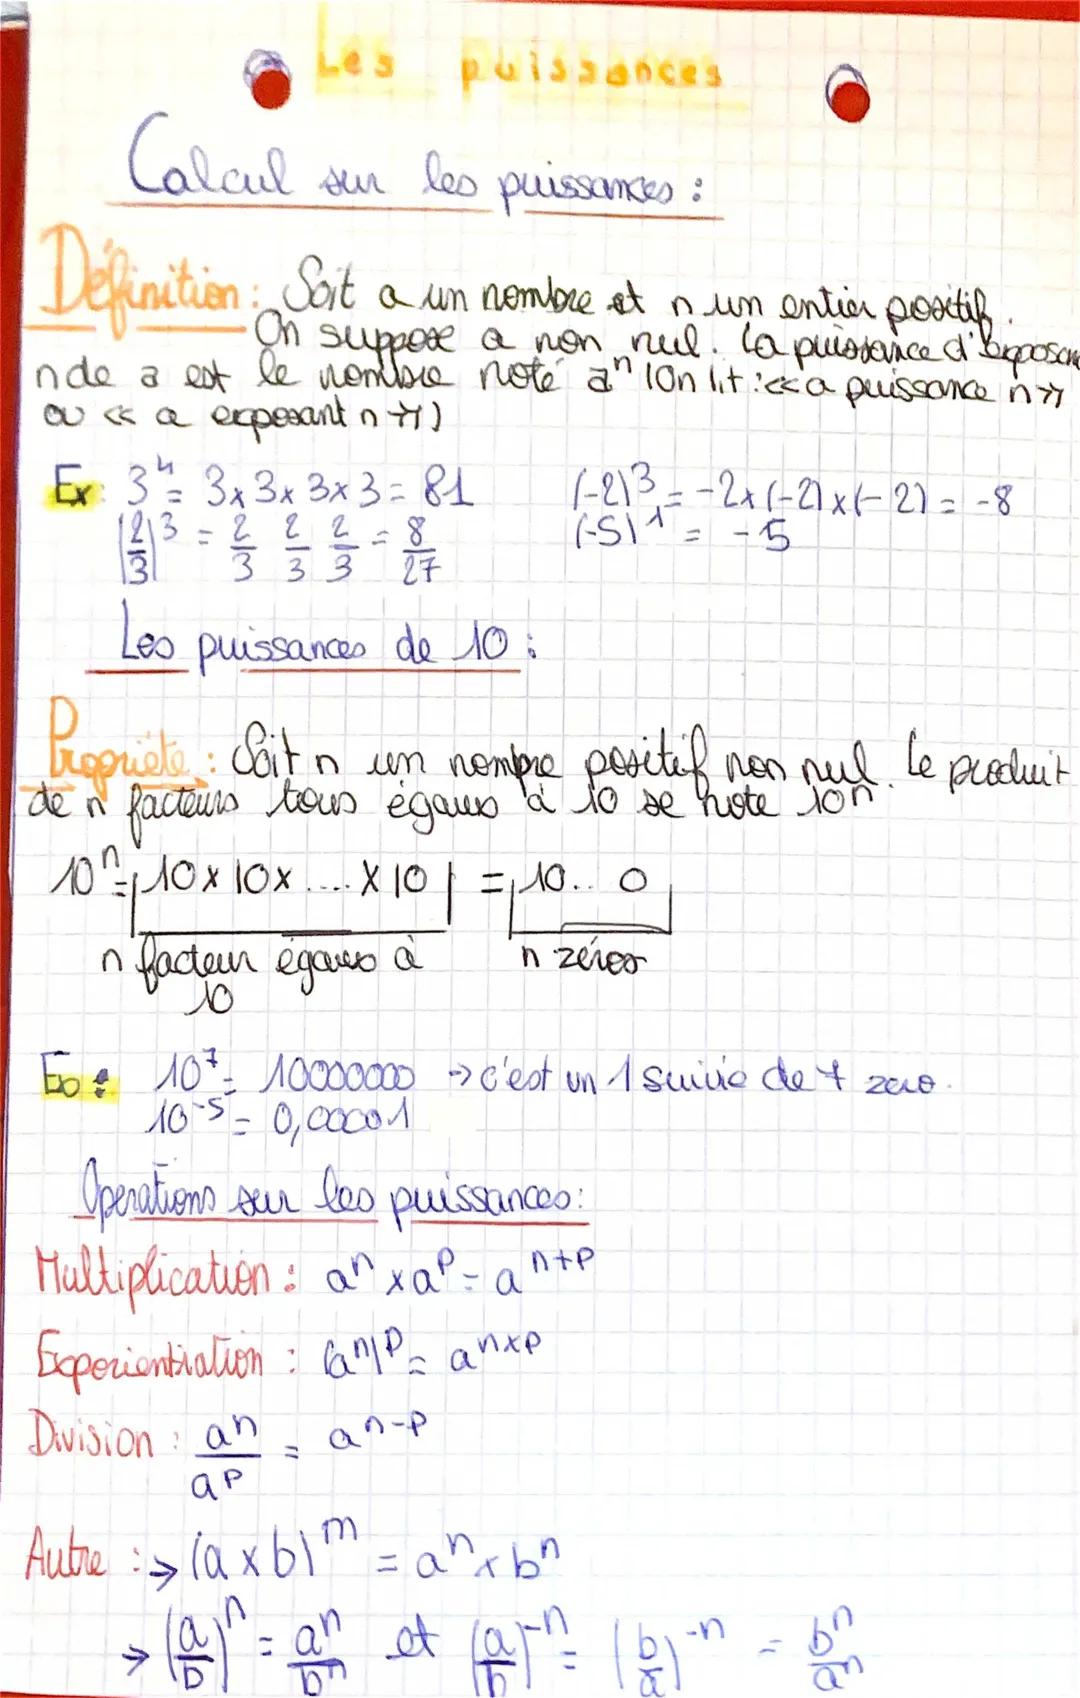 Les puissances
Calcul sur les puissances :
Définition : Soit a un nombre et n un entier positif.
On suppose a non nul. La puissance d'exposan
n de a est le nombre noté aⁿ (On lit : << a puissance n >>
ou << a exposant n >>)
Ex : 3⁴ = 3 x 3 x 3 x 3 = 81 (-2)³ = -2 x (-2) x (-2) = -8
(2/3)³ = 2/3 2/3 2/3 = 8/27 (-5)¹ = -5
Les puissances de 10 :
Propriété : Soit n un nombre positif non nul. Le produit
de n facteurs tous égaux à 10 se note 10ⁿ
10ⁿ = 10 x 10 x .... x 10 = 10.. 0
n facteur égaux à n zéros
10
Ex : 10⁷ = 10000000 → c'est un 1 suivie de 7 zero.
10⁻⁵ = 0,00001
Operations sur les puissances :
Multiplication : aⁿ x aᵖ = aⁿ⁺ᵖ
Exporientiation : (aⁿ)ᵖ = aⁿˣᵖ
Division : aⁿ/aᵖ = aⁿ⁻ᵖ
Autre : → (a x b)ᵐ = aⁿ x bⁿ
→ (a/b)ⁿ = aⁿ/bⁿ et (a/b)⁻ⁿ = (b/a)⁻ⁿ = bⁿ/aⁿ